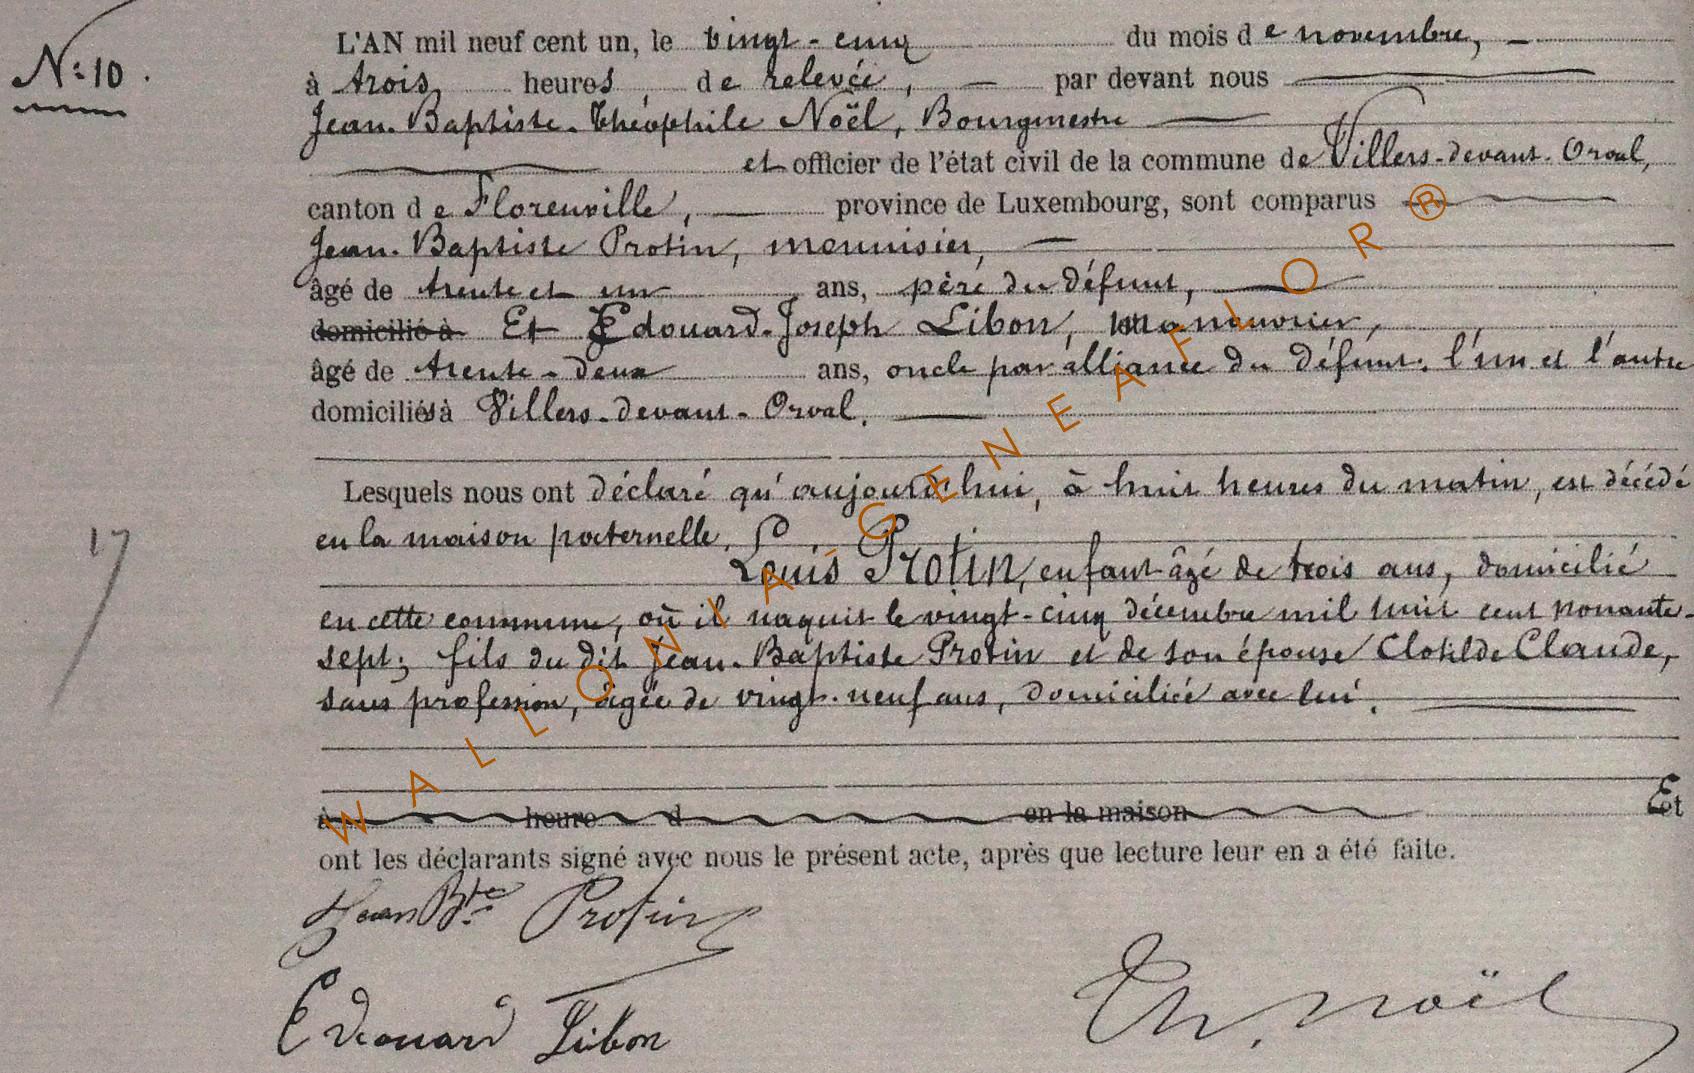 N° 10.
L'AN mil neuf cent un, le vingt-cinq du mois de novembre,
à trois heures de relevée, par devant nous
Jean-Baptiste-Théophile Noël, Bourgmestre
et officier de l'état civil de la commune de Villers-devant-Orval,
canton de Florenville, province de Luxembourg, sont comparus
Jean-Baptiste Protin, menuisier,
âgé de trente et un ans, père du défunt,
domicilié à Et Edouard-Joseph Libon, manouvrier,
âgé de trente-deux ans, oncle par alliance du défunt. l'un et l'autre
domiciliés à Villers-devant-Orval.
Lesquels nous ont déclaré qu'aujourd'hui, à huit heures du matin, est décédé
en la maison paternelle,
Louis Protin, enfant âgé de trois ans, domicilié
en cette commune, où il naquit le vingt-cinq décembre mil huit cent nonante-
sept; fils du dit Jean-Baptiste Protin et de son épouse Clotilde Claude,
sans profession, âgée de vingt-neuf ans, domiciliée avec lui.
17
à heure d en la maison Et
ont les déclarants signé avec nous le présent acte, après que lecture leur en a été faite.
Jean Bte Protin
Edouard Libon
Th. Noël
WALLONIA-GENEAFLOR®